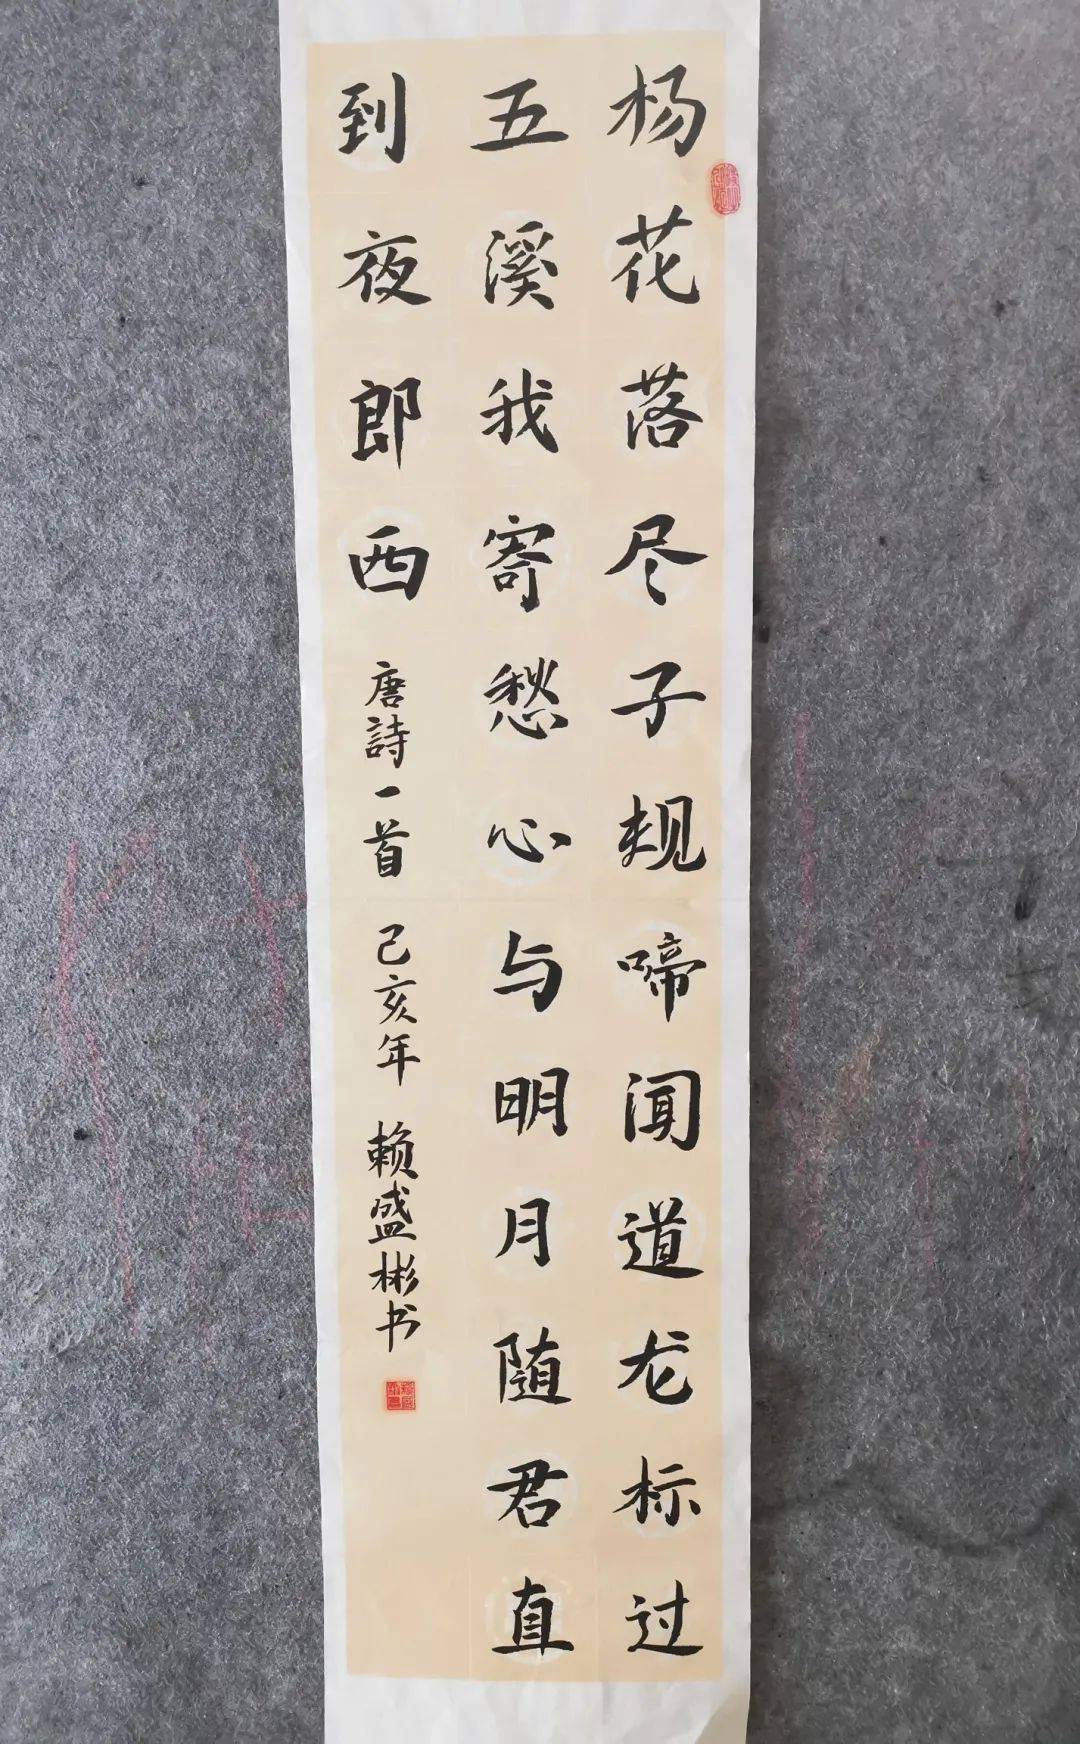 杨花落尽子规啼闻道龙标过
五溪我寄愁心与明月随君直
到夜郎西
唐詩一首 己亥年 赖盛彬书